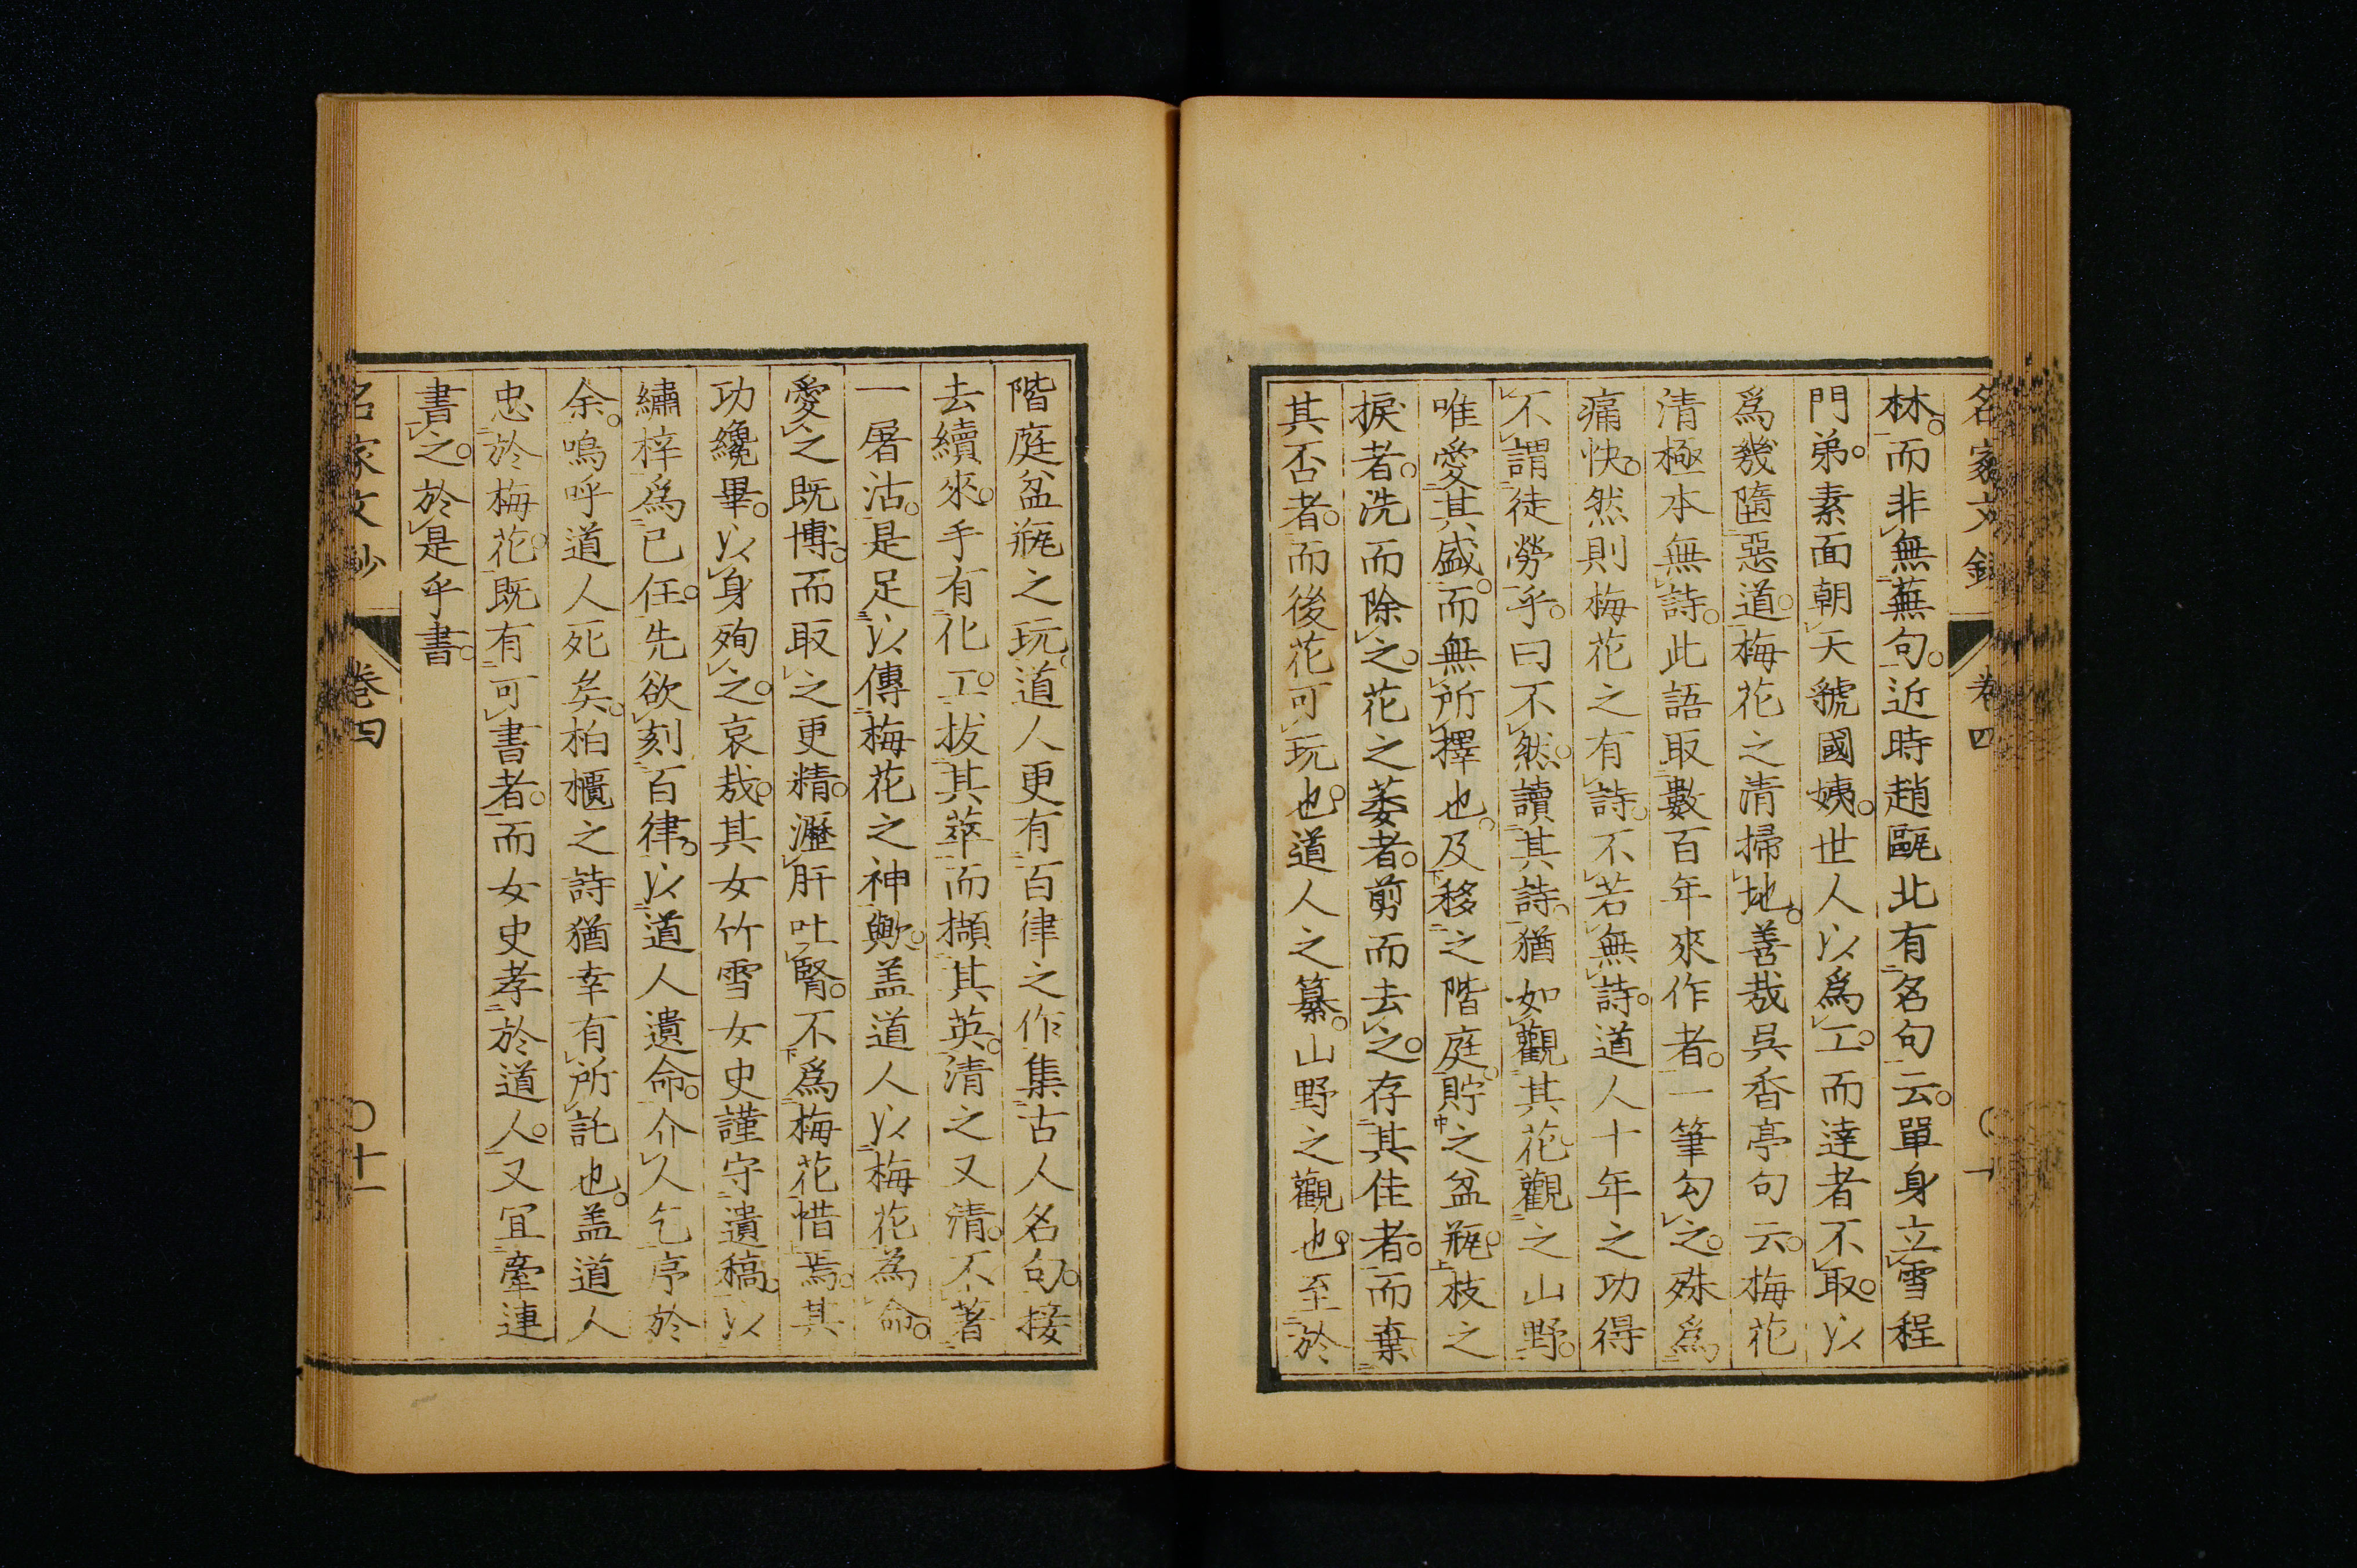 名家文鈔 卷四
林。而非無蕪句。近時趙甌北有名句云。單身立雪程
門弟。素面朝天虢國姨。世人以爲工。而達者不取。以
爲幾墮惡道。梅花之清掃地。善哉吳香亭句云。梅花
清極本無詩。此語取數百年來作者。一筆勾之。殊爲
痛快。然則梅花之有詩。不若無詩。道人十年之功得
不謂徒勞乎。曰不然。讀其詩。猶如觀其花。觀之山野。
唯愛其盛。而無所擇也。及移之階庭。貯之盆瓶。枝之
捩者。洗而除之。花之萎者。剪而去之。存其佳者。而棄
其否者。而後花可玩也。道人之纂。山野之觀也。至於
階庭盆瓶之玩。道人更有百律之作集古人名句。接
去續來。手有化工。拔其萃而擷其英。清之又清。不著
一屠沽。是足以傳梅花之神歟。盖道人以梅花為命。
愛之既博。而取之更精。瀝肝吐腎。不爲梅花惜焉。其
功纔畢。以身殉之。哀哉。其女竹雪女史謹守遺稿。以
繡梓爲已任。先欲刻百律。以道人遺命。介人乞序於
余。嗚呼道人死矣。柏櫃之詩猶幸有所託也。盖道人
忠於梅花。既有可書者。而女史孝於道人。又宜牽連
書之。於是乎書。
名家文鈔 卷四 〇十一